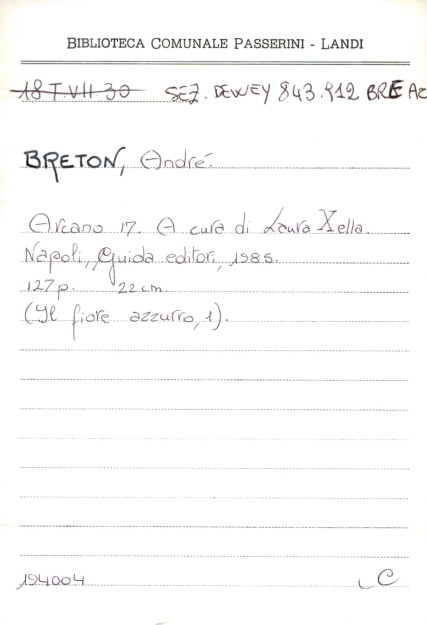 BIBLIOTECA COMUNALE PASSERINI - LANDI
18 T.VII 30 SEZ. DEWEY 843.912 BRE Ac
BRETON, André.
Arcano 17. A cura di Laura Xella.
Napoli, Guida editori, 1985.
127 p. 22 cm.
(Il fiore azzurro, 1).
194004 C